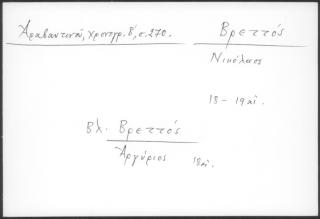 Ἀραβαντινοῦ, Χρονογρ. β', σ. 270.
Βρεττός
Νικόλαος
18 - 19 αἰ.
Βλ. Βρεττός
Ἀργύριος 18 αἰ.